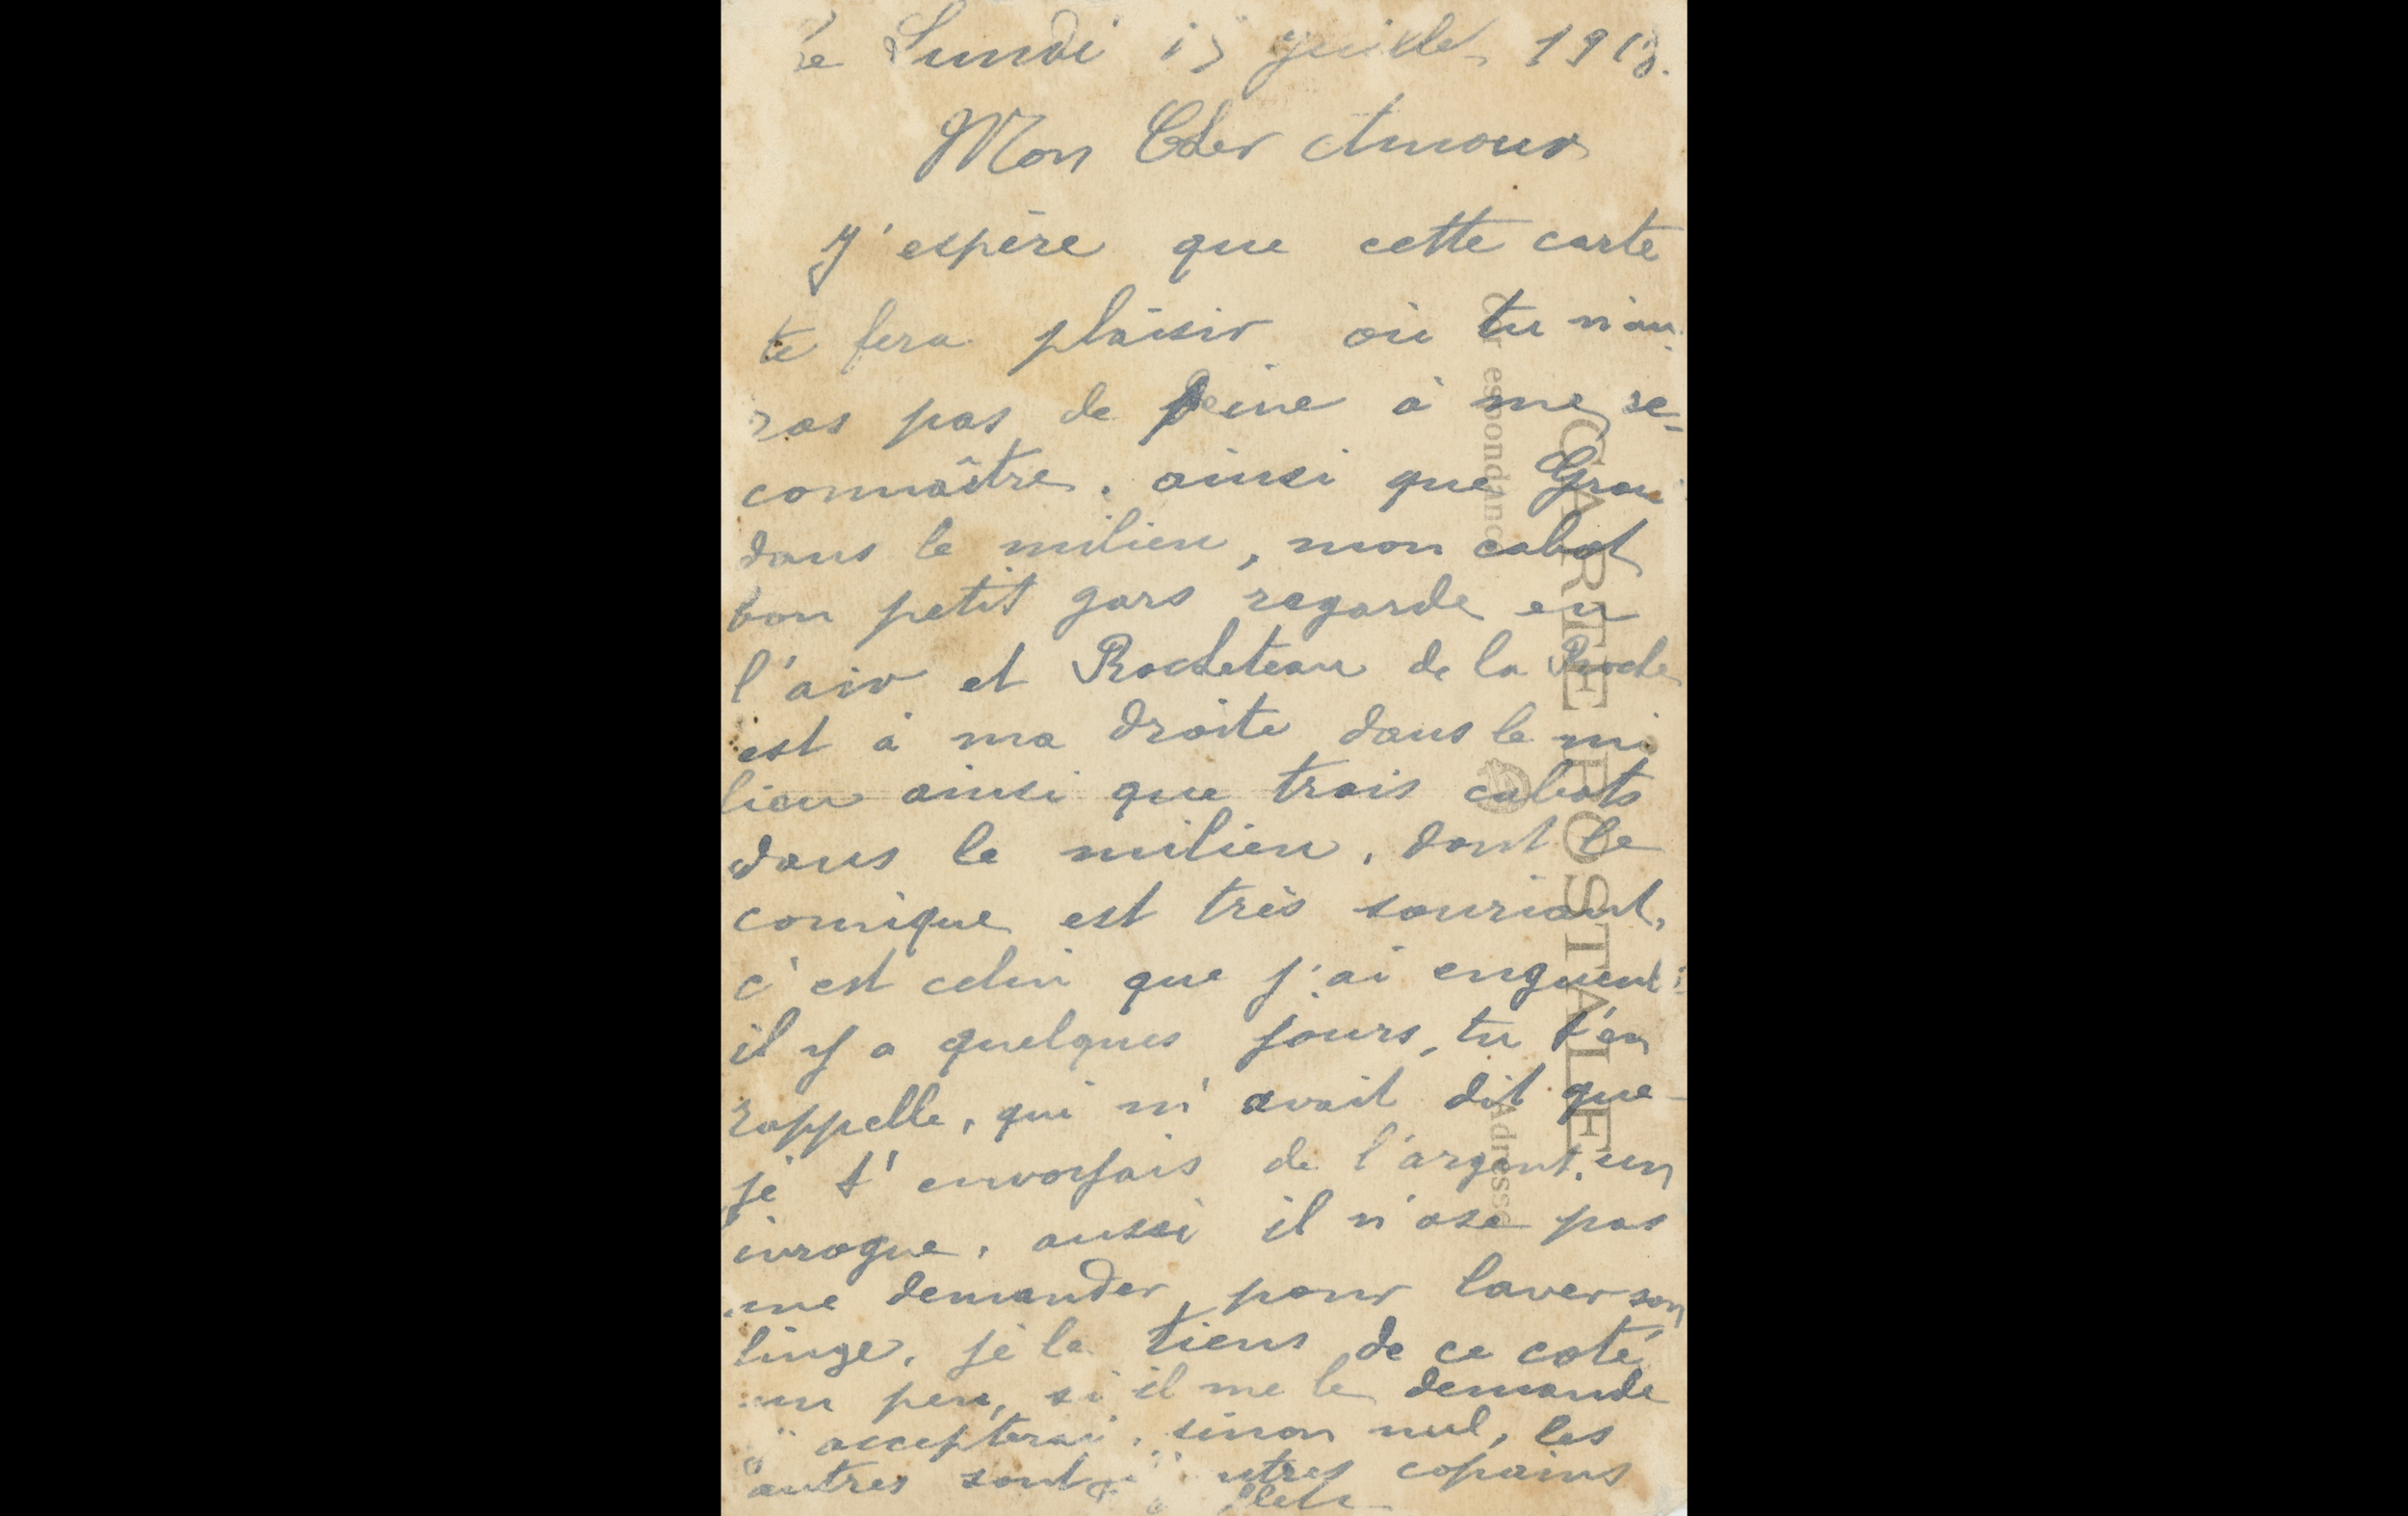 Le Lundi 15 juillet 1918.
Mon Cher Amour
J'espère que cette carte
te fera plaisir où tu n'au-
ras pas de peine à me re-
connaître. ainsi que Grau
dans le milieu, mon cabot
bon petit gars regarde en
l'air et Rocheteau de la Roche
est à ma droite dans le mi
lieu ainsi que trois cabots
dans le milieu, dont le
comique est très souriant,
c'est celui que j'ai enguenl
il y a quelques jours, tu t'en
rappelle, qui m'avait dit que
je t'envoyais de l'argent, un
ivrogne, aussi il n'ose pas
me demander pour laver son
linge, je le tiens de ce coté
un peu, si il me le demande
j'accepterai, sinon nul, les
autres sont copains
CARTE POSTALE
Correspondance
Adresse